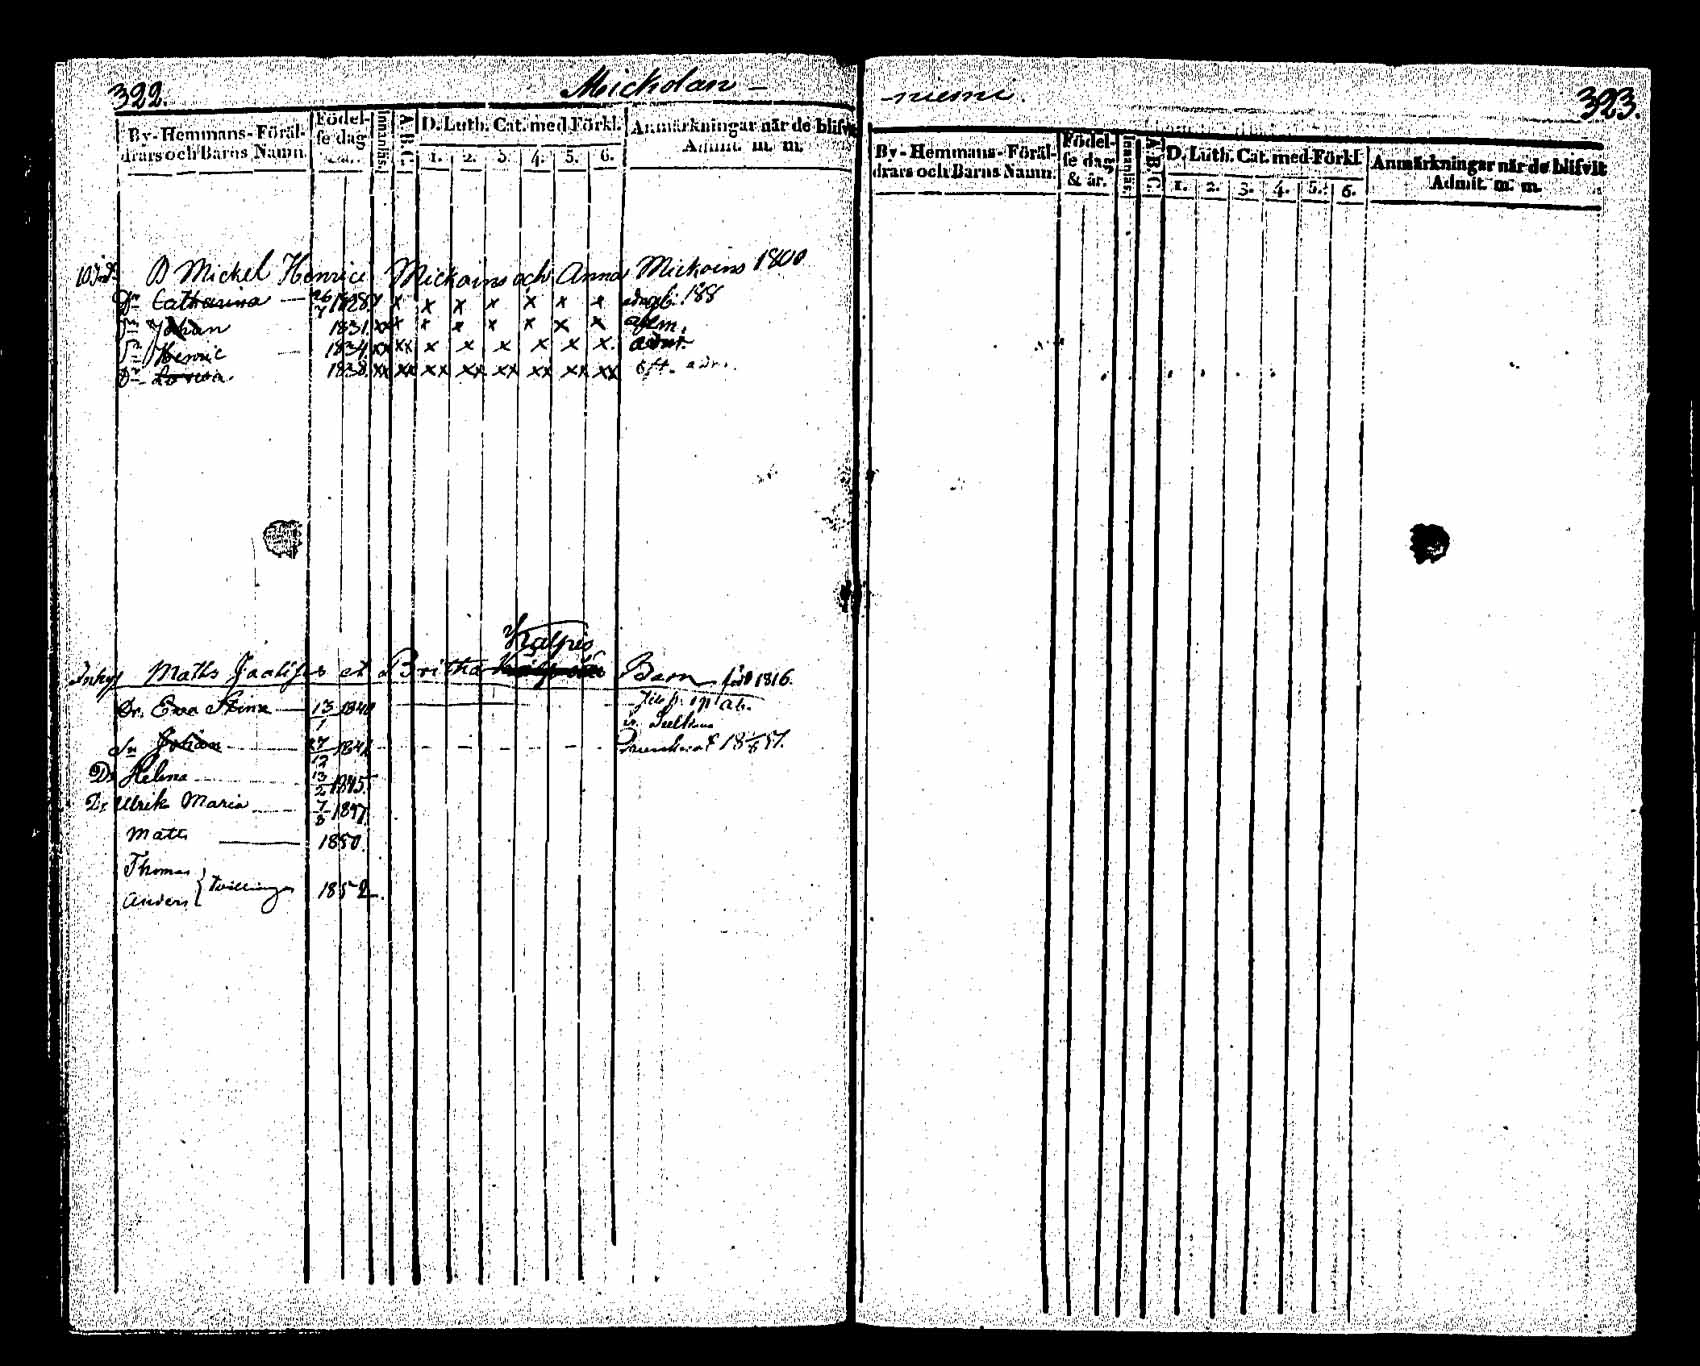 322.
Mickolan-
By-Hemmans-Föräl-
drars och Barns Namn.
Födel-
se dag
Innanläs.
A.B.C.
D. Luth. Cat. med Förkl.
1. 2. 3. 4. 5. 6.
Anmärkningar när de blifvit
Admit. m. m.
D Mickel Henrici Mickoins och Anna Mickoins 1800
Dr Catharina 26/7 1828 x x x x x x x
Sn Johan 1831 xx x x x x x x x
Sn Henric 1834 xx xx x x x x x x adm.
Dr Lovisa 1838 xx xx xx xx xx xx xx xx
Kalpio
Inhys Maths et Britha Barn född 1816.
Dr. Eva Stina 13/1 1840
Sn Johan 27/12 1841
Dr Helena 13/2 1845
Dr. Ulrik Maria 7/8 1847
Matts 1850.
Thomas
Anders } tvillingar 1852
-niemi.
323.
By-Hemmans-Föräl-
drars och Barns Namn.
Födel-
se dag
& år.
Innanläs.
A.B.C.
D. Luth. Cat. med Förkl.
1. 2. 3. 4. 5. 6.
Anmärkningar när de blifvit
Admit. m. m.